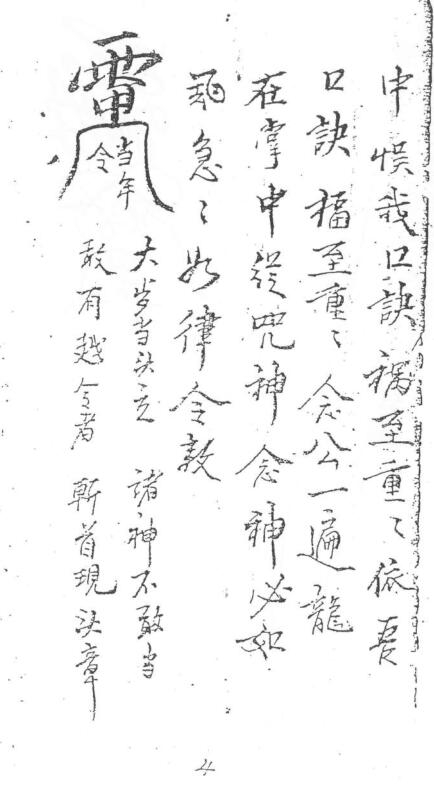 中悮我口訣禍至重〻依吾
口訣福至重〻念公一遍龍
在掌中從咒神念神必如
急〻如律令敕
当年
令
大岁当头立 諸神不敢当
敢有越令者 斬首現头章
4